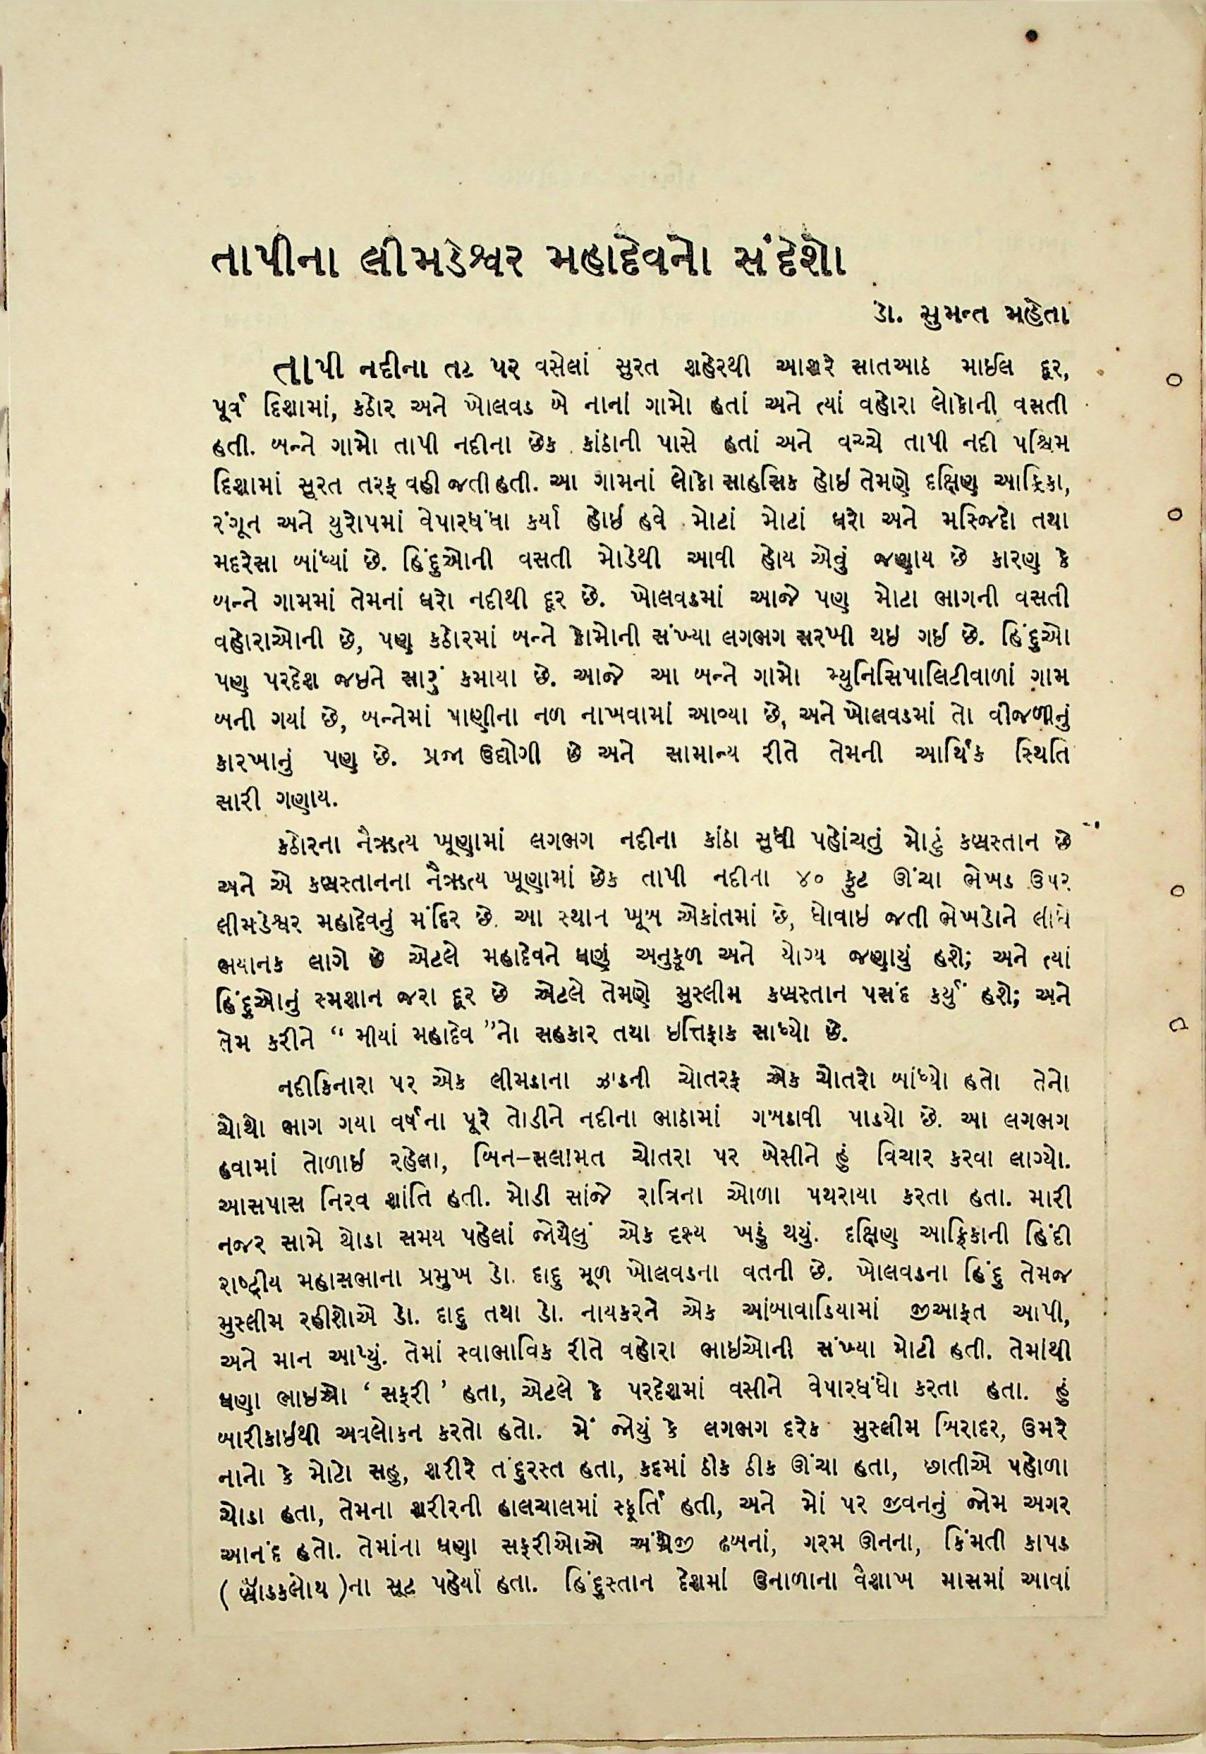 તાપીના લીમડેશ્વર મહાદેવનો સંદેશો
ડૉ. સુમન્ત મહેતા
તાપી નદીના તટ પર વસેલાં સુરત શહેરથી આશરે સાતઆઠ માઈલ દૂર,
પૂર્વ દિશામાં, કઠોર અને ખોલવડ બે નાનાં ગામો હતાં અને ત્યાં વહોરા લોકોની વસતી
હતી. બન્ને ગામો તાપી નદીના છેક કાંઠાની પાસે હતાં અને વચ્ચે તાપી નદી પશ્ચિમ
દિશામાં સૂરત તરફ વહી જતી હતી. આ ગામનાં લોકો સાહસિક હોઇ તેમણે દક્ષિણ આફ્રિકા,
રંગૂન અને યુરોપમાં વેપારધંધા કર્યા હોઇ હવે મોટાં મોટાં ઘરો અને મસ્જિદો તથા
મદરેસા બાંધ્યાં છે. હિંદુઓની વસતી મોડેથી આવી હોય એવું જણાય છે કારણ કે
બન્ને ગામમાં તેમનાં ઘરો નદીથી દૂર છે. ખોલવડમાં આજે પણ મોટા ભાગની વસતી
વહોરાઓની છે, પણ કઠોરમાં બન્ને કોમોની સંખ્યા લગભગ સરખી થઇ ગઈ છે. હિંદુઓ
પણ પરદેશ જઇને સારું કમાયા છે. આજે આ બન્ને ગામો મ્યુનિસિપાલિટીવાળાં ગામ
બની ગયાં છે, બન્નેમાં પાણીના નળ નાખવામાં આવ્યા છે, અને ખોલવડમાં તો વીજળીનું
કારખાનું પણ છે. પ્રજા ઉદ્યોગી છે અને સામાન્ય રીતે તેમની આર્થિક સ્થિતિ
સારી ગણાય.
કઠોરના નૈઋત્ય ખૂણામાં લગભગ નદીના કાંઠા સુધી પહોંચતું મોટું કબ્રસ્તાન છે
અને એ કબ્રસ્તાનના નૈઋત્ય ખૂણામાં છેક તાપી નદીના ૪૦ ફુટ ઊંચા ભેખડ ઉપર
લીમડેશ્વર મહાદેવનું મંદિર છે. આ સ્થાન ખૂબ એકાંતમાં છે, ધોવાઇ જતી ભેખડોને લીધે
ભયાનક લાગે છે એટલે મહાદેવને ઘણું અનુકૂળ અને યોગ્ય જણાયું હશે; અને ત્યાં
હિંદુઓનું સ્મશાન જરા દૂર છે એટલે તેમણે મુસ્લીમ કબ્રસ્તાન પસંદ કર્યું હશે; અને
તેમ કરીને “ મીયાં મહાદેવ ”નો સહકાર તથા ઇત્તિફાક સાધ્યો છે.
નદીકિનારા પર એક લીમડાના ઝાડની ચોતરફ એક ચોતરો બાંધ્યો હતો તેનો
ચોથો ભાગ ગયા વર્ષના પૂરે તોડીને નદીના ભાઠામાં ગબડાવી પાડયો છે. આ લગભગ
હવામાં તોળાઇ રહેલા, બિન-સલામત ચોતરા પર બેસીને હું વિચાર કરવા લાગ્યો.
આસપાસ નિરવ શાંતિ હતી. મોડી સાંજે રાત્રિના ઓળા પથરાયા કરતા હતા. મારી
નજર સામે થોડા સમય પહેલાં જોયેલું એક દૃશ્ય ખડું થયું. દક્ષિણ આફ્રિકાની હિંદી
રાષ્ટ્રીય મહાસભાના પ્રમુખ ડૉ. દાદુ મૂળ ખોલવડના વતની છે. ખોલવડના હિંદુ તેમજ
મુસ્લીમ રહીશોએ ડૉ. દાદુ તથા ડૉ. નાયકરને એક આંબાવાડિયામાં જીઆફત આપી,
અને માન આપ્યું. તેમાં સ્વાભાવિક રીતે વહોરા ભાઇઓની સંખ્યા મોટી હતી. તેમાંથી
ઘણા ભાઇઓ ‘ સફરી ’ હતા, એટલે કે પરદેશમાં વસીને વેપારધંધો કરતા હતા. હું
બારીકાઇથી અવલોકન કરતો હતો. મેં જોયું કે લગભગ દરેક મુસ્લીમ બિરાદર, ઉમરે
નાનો કે મોટો સહુ, શરીરે તંદુરસ્ત હતા, કદમાં ઠીક ઠીક ઊંચા હતા, છાતીએ પહોળા
ચોડા હતા, તેમના શરીરની હાલચાલમાં સ્ફૂર્તિ હતી, અને મોં પર જીવનનું જોમ અગર
આનંદ હતો. તેમાંના ઘણા સફરીઓએ અંગ્રેજી ઢબનાં, ગરમ ઊનના, કિંમતી કાપડ
(બ્રૉડક્લોથ)ના સૂટ પહેર્યા હતા. હિંદુસ્તાન દેશમાં ઉનાળાના વૈશાખ માસમાં આવાં